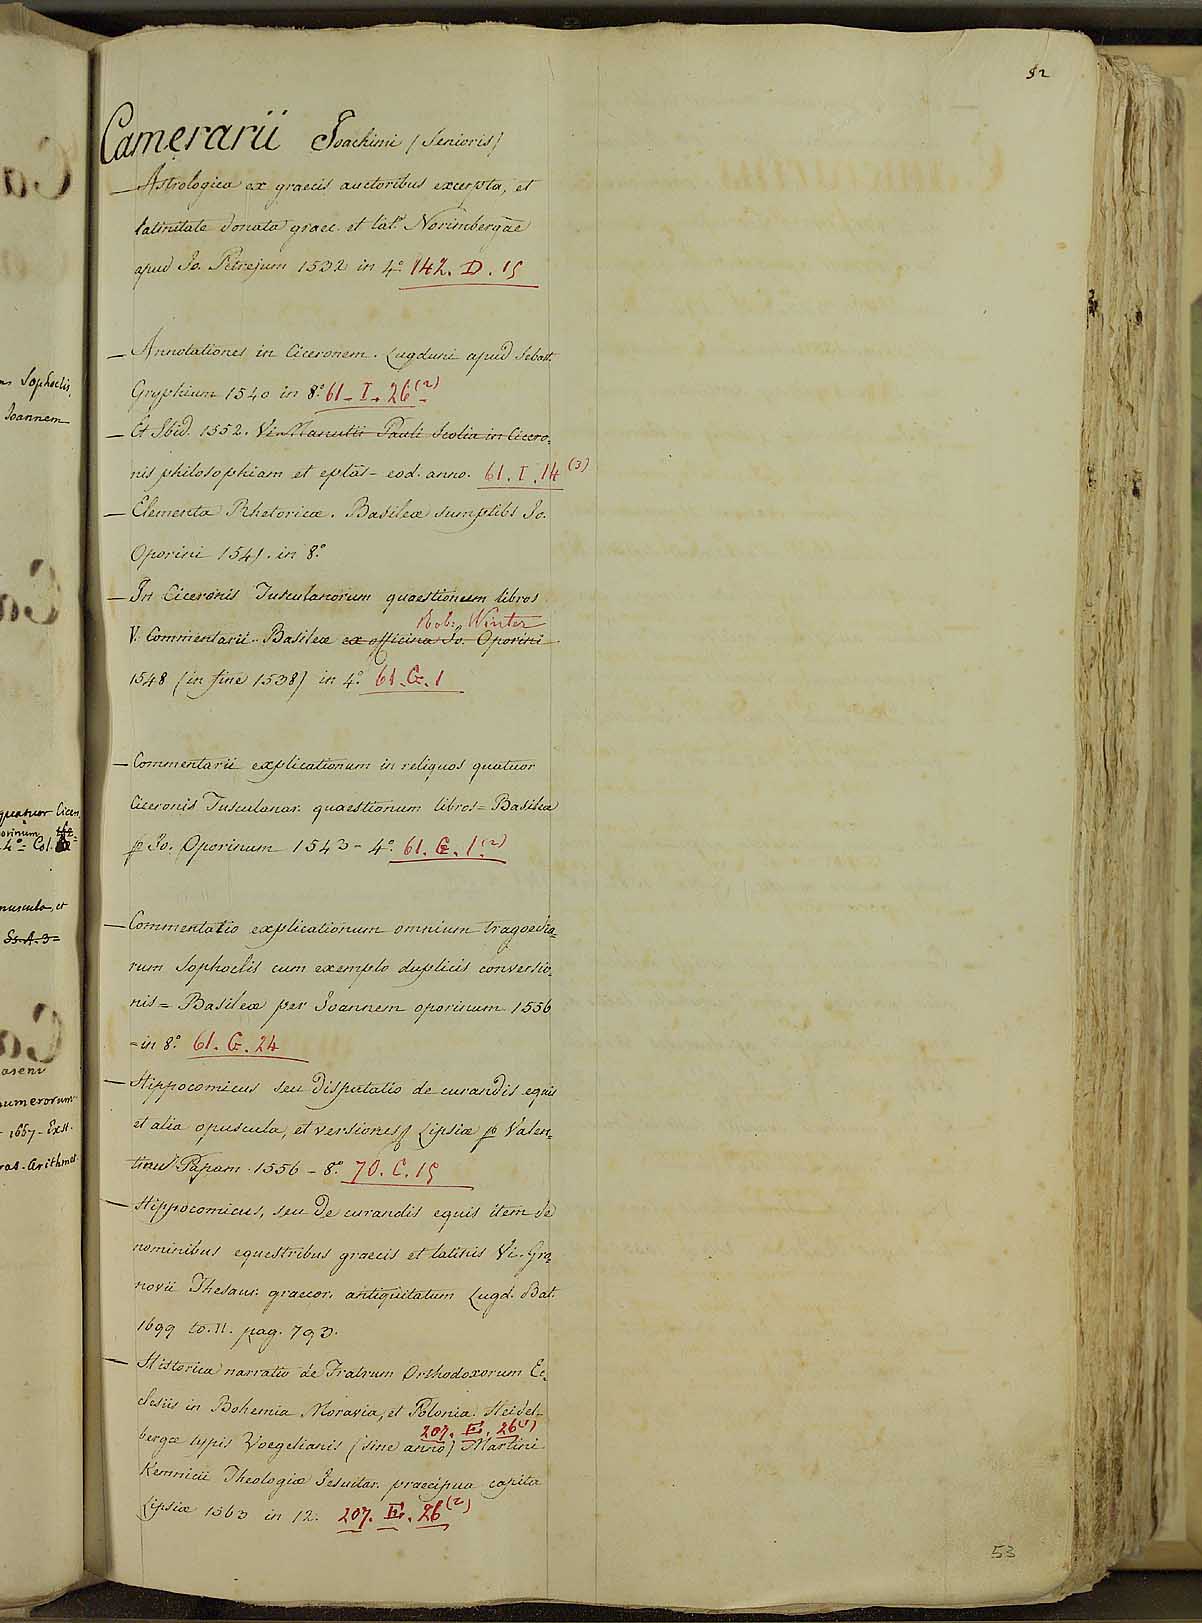 52
Camerarii Joachimi (Senioris)
— Astrologica ex graecis auctoribus excerpta, et
latinitate donata graec. et lat.e Norimbergae
apud Jo. Petrejum 1532 in 4.o 142. D. 15
— Annotationes in Ciceronem. Lugduni apud Sebast.
Gryphium 1540 in 8.o 61. I. 26 (2)
— Et Ibid. 1552. Vi. Manutii Pauli Scolia in Cicero=
nis philosophiam et eptas - eod. anno. 61. I. 14 (3)
— Elementa Rhetoricæ. Basileæ sumptibs Jo.
Oporini 1541. in 8.o
— In Ciceronis Tusculanorum quaestionum libros
Rob. Winter
V. Commentarii. Basileæ ex officina Jo. Oporini
1548 (in fine 1538) in 4.o 61. G. 1
— Commentarii explicationum in reliquos quatuor
Ciceronis Tusculanar. quaestionum libros = Basileæ
p Jo. Oporinum 1543 - 4.o 61. G. 1 (2)
— Commentatio explicationum omnium tragoedia=
rum Sophoclis cum exemplo duplicis conversio=
nis = Basileæ per Joannem oporinum 1556
= in 8.o 61. G. 24
— Hippocomicus seu Disputatio de curandis equis
et alia opuscula, et versiones Lipsiæ p Valen=
tinu Papam 1556 - 8.o 70. C. 15
— Hippocomicus, seu De curandis equis item de
nominibus equestribus graecis et latinis Vi. Gro=
novii Thesaur. graecor. antiquitatum Lugd. Bat.
1699 to. 11. pag. 793.
— Historica narratio de Fratrum Orthodoxorum Ec=
clesiis in Bohemia Moravia, et Polonia. Heidel=
207. E. 26 (1)
bergæ typis Voegelianis (sine anno) Martini
Kemnicii Theologiæ Jesuitar. praecipua capita
Lipsiæ 1563 in 12. 207. E. 26 (2)
53
Sophoclis,
Joannem
quatuor Cicer.
orinum
4.o = Col.
nuscula, et
Ss. A. 3 =
numerorum
1667 - Exst.
Arithmet